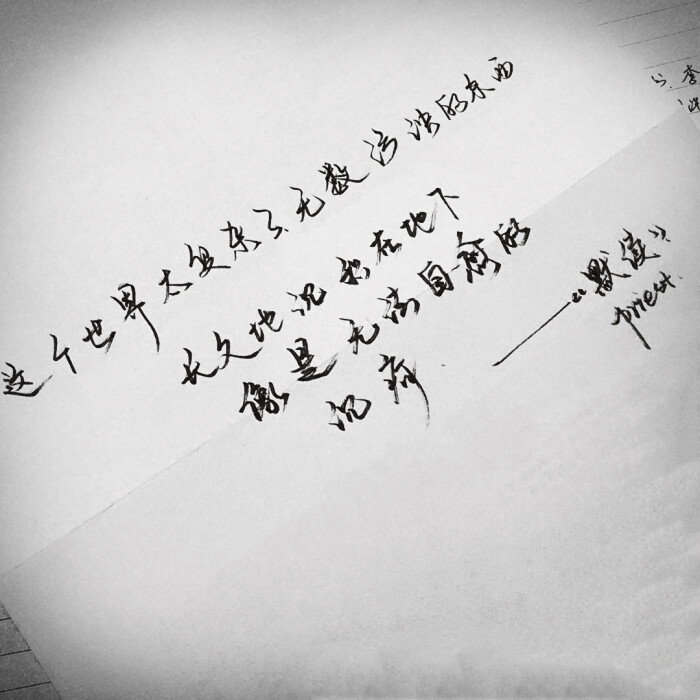 这个世界太复杂了无数污浊的东西
长久地沉积在地下
像是无法自愈的
沉疴
——《默读》
priest.